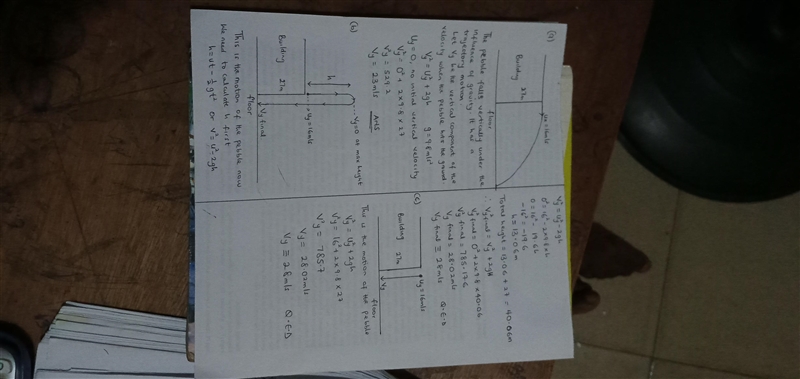 (a)
Building
27m
Ux = 16m/s
floor
The pebble falls vertically under the
influence of gravity. It has a
trajectory motion.
Let Vy be the vertical component of the
velocity when the pebble hits the ground.
Vy² = Uy² + 2gh g = 9.8m/s²
Uy = 0, no initial vertical velocity
Vy² = 0² + 2 x 9.8 x 27
Vy² = 529.2
Vy = 23m/s Ans
(b)
Vy = 0 at max height
h
Uy = 16m/s
Building
27m
floor
Vy final
This is the motion of the pebble now
h = ut - ½gt² or v² = u² - 2gh
We need to calculate h first
Vy² = Uy² - 2gh
0² = 16² - 2x9.8xh
0 = 16² - 19.6h
-16² = -19.6
h = 13.06m
Total height = 13.06 + 27 = 40.06m
∴ Vy²final = Vy² + 2gH
Vy²final = 0² + 2x9.8x40.06
Vy²final = 785.176
Vy final = 28.02m/s
Vy final ≅ 28m/s Q.E.D
(c)
Uy = 16m/s
Building
27m
floor
Vy
This is the motion of the pebble
Vy² = Uy² + 2gh
Vy² = 16² + 2 x 9.8 x 27
Vy² = 785.7
Vy = 28.02m/s
Vy ≅ 28m/s Q.E.D